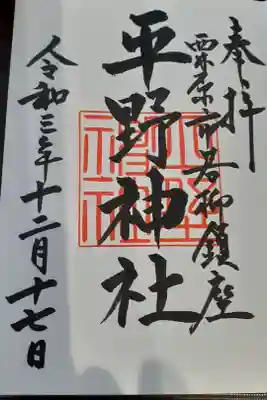 奉拝
栗原市若柳鎮座
平野神社
平野神社
令和三年十二月十七日